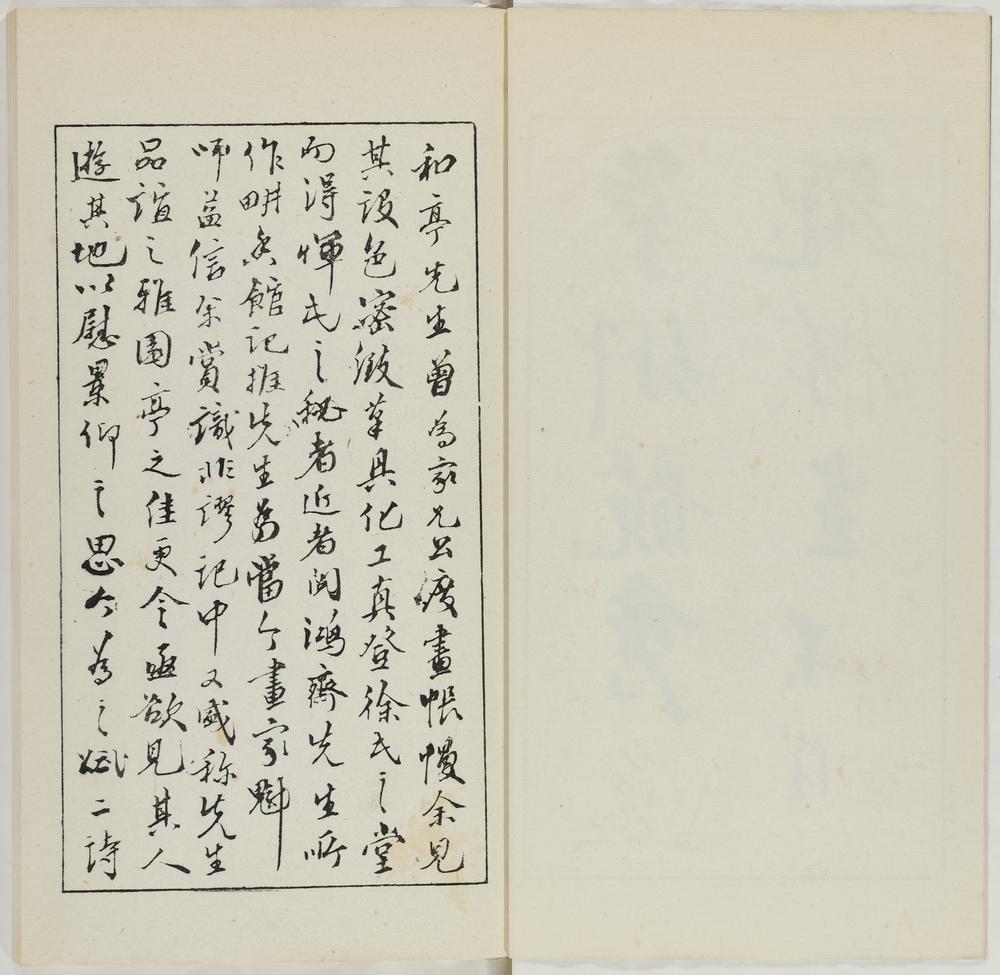 和亭先生曾為家兄公度畫帳幔余見
其設色密緻草具化工真登徐氏之堂
而得惲氏之秘者近者閱鴻齋先生所
作畊香館記推先生為當今畫家魁
師益信余賞識非謬記中又盛称先生
品誼之雅園亭之佳更令亟欲見其人
遊其地以慰景仰之思今為之賦二詩